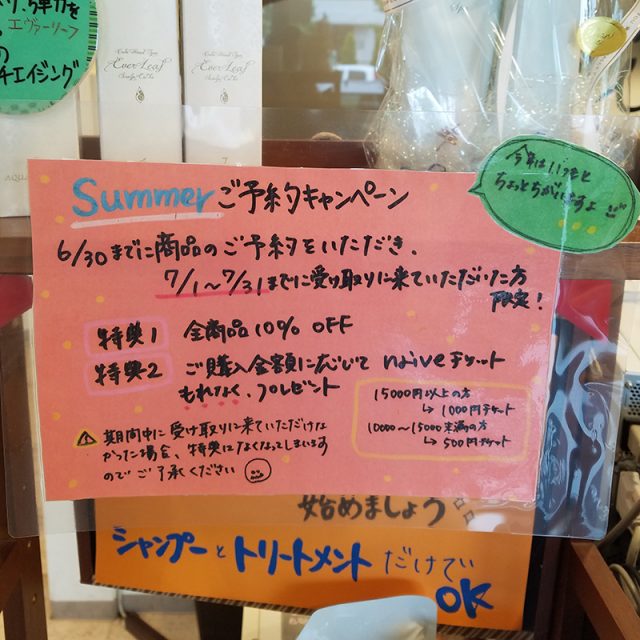 り、弾力を
エヴァーリーフ
の
チエイジング
Ever Leaf
Ever Leaf
今年はいつもと
ちょっとちがいますよ
Summerご予約キャンペーン
6/30までに商品のご予約をいただき、
7/1~7/31までに受け取りに来ていただいた方
限定!
特典1 全商品10% OFF
特典2 ご購入金額に応じて naiveチケット
もれなく、プレゼント
15000円以上の方
→ 1000円チケット
10000~15000未満の方
→ 500円チケット
⚠ 期間中に受け取りに来ていただけな
かった場合、特典はなくなってしまいます
のでご了承ください
始めましょう
シャンプーとトリートメントだけでも
OK